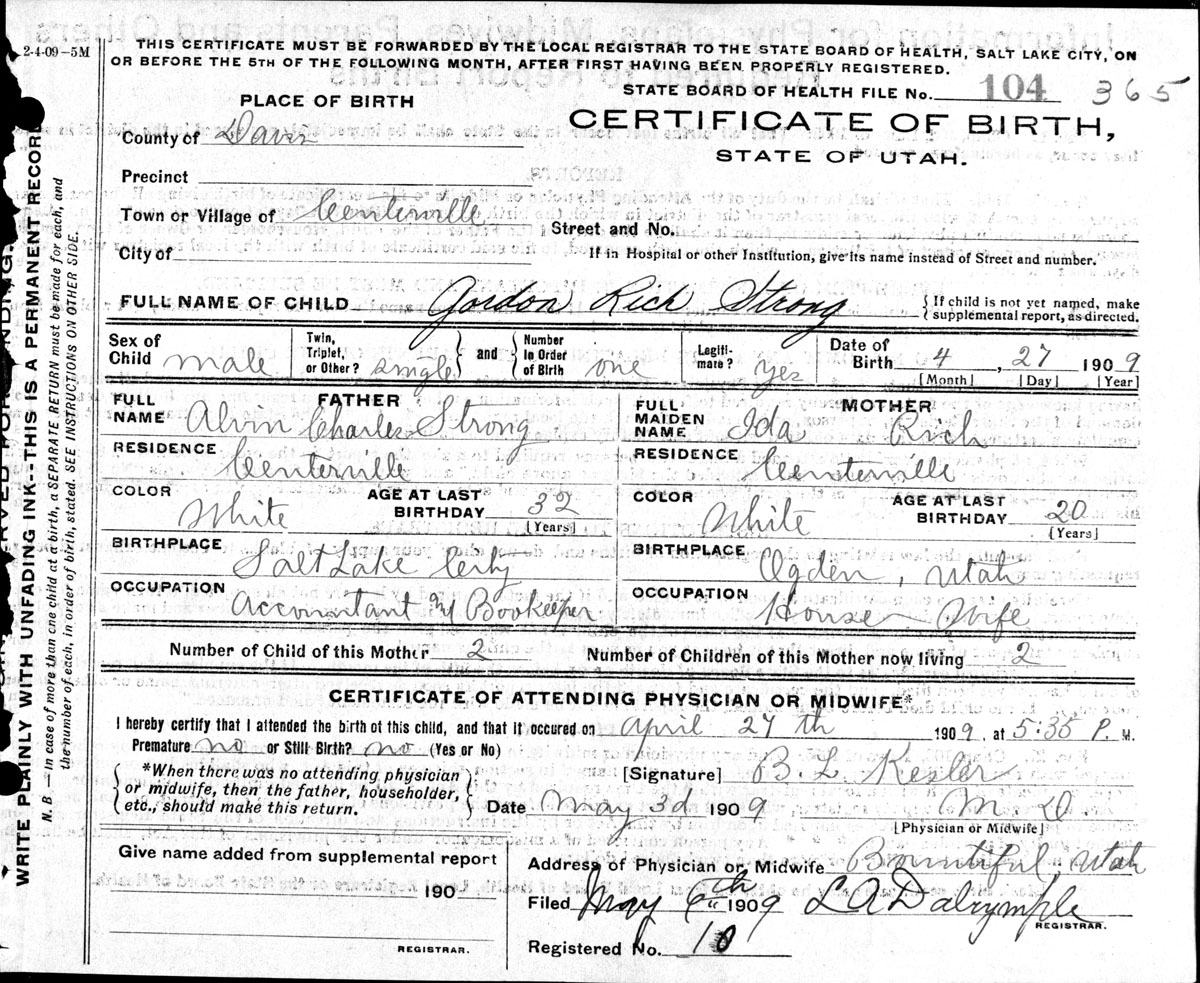 2-4-09-5M
THIS CERTIFICATE MUST BE FORWARDED BY THE LOCAL REGISTRAR TO THE STATE BOARD OF HEALTH, SALT LAKE CITY, ON
OR BEFORE THE 5TH OF THE FOLLOWING MONTH, AFTER FIRST HAVING BEEN PROPERLY REGISTERED.
STATE BOARD OF HEALTH FILE No. 104 365
PLACE OF BIRTH
CERTIFICATE OF BIRTH,
STATE OF UTAH.
County of Davis
Precinct
Town or Village of Centerville
Street and No.
City of
If in Hospital or other Institution, give its name instead of Street and number.
FULL NAME OF CHILD Gordon Rich Strong
{If child is not yet named, make
supplemental report, as directed.
Sex of Child male
Twin, Triplet, or Other? single
and
Number in Order of Birth one
Legiti-mate? yes
Date of Birth 4, 27 1909
[Month] [Day] [Year]
FATHER
FULL NAME Alvin Charles Strong
RESIDENCE Centerville
COLOR White
AGE AT LAST BIRTHDAY 32
[Years]
BIRTHPLACE Salt Lake City
OCCUPATION Accountant & Bookeeper
MOTHER
FULL MAIDEN NAME Ida Rich
RESIDENCE Centerville
COLOR White
AGE AT LAST BIRTHDAY 20
[Years]
BIRTHPLACE Ogden, Utah
OCCUPATION House Wife
Number of Child of this Mother 2
Number of Children of this Mother now living 2
CERTIFICATE OF ATTENDING PHYSICIAN OR MIDWIFE*
I hereby certify that I attended the birth of this child, and that it occured on April 27th 1909, at 5:35 P. M.
Premature no or Still Birth? no (Yes or No)
*When there was no attending physician
or midwife, then the father, householder,
etc., should make this return.
[Signature] B. L. Kesler
Date May 3d 1909 M D
[Physician or Midwife]
Give name added from supplemental report
190
REGISTRAR.
Address of Physician or Midwife Bountiful, Utah
Filed May 6th 1909 L A Dalrymple
REGISTRAR.
Registered No. 10
WRITE PLAINLY WITH UNFADING INK--THIS IS A PERMANENT RECORD
N. B. — In case of more than one child at a birth, a SEPARATE RETURN must be made for each, and
the number of each, in order of birth, stated. SEE INSTRUCTIONS ON OTHER SIDE.